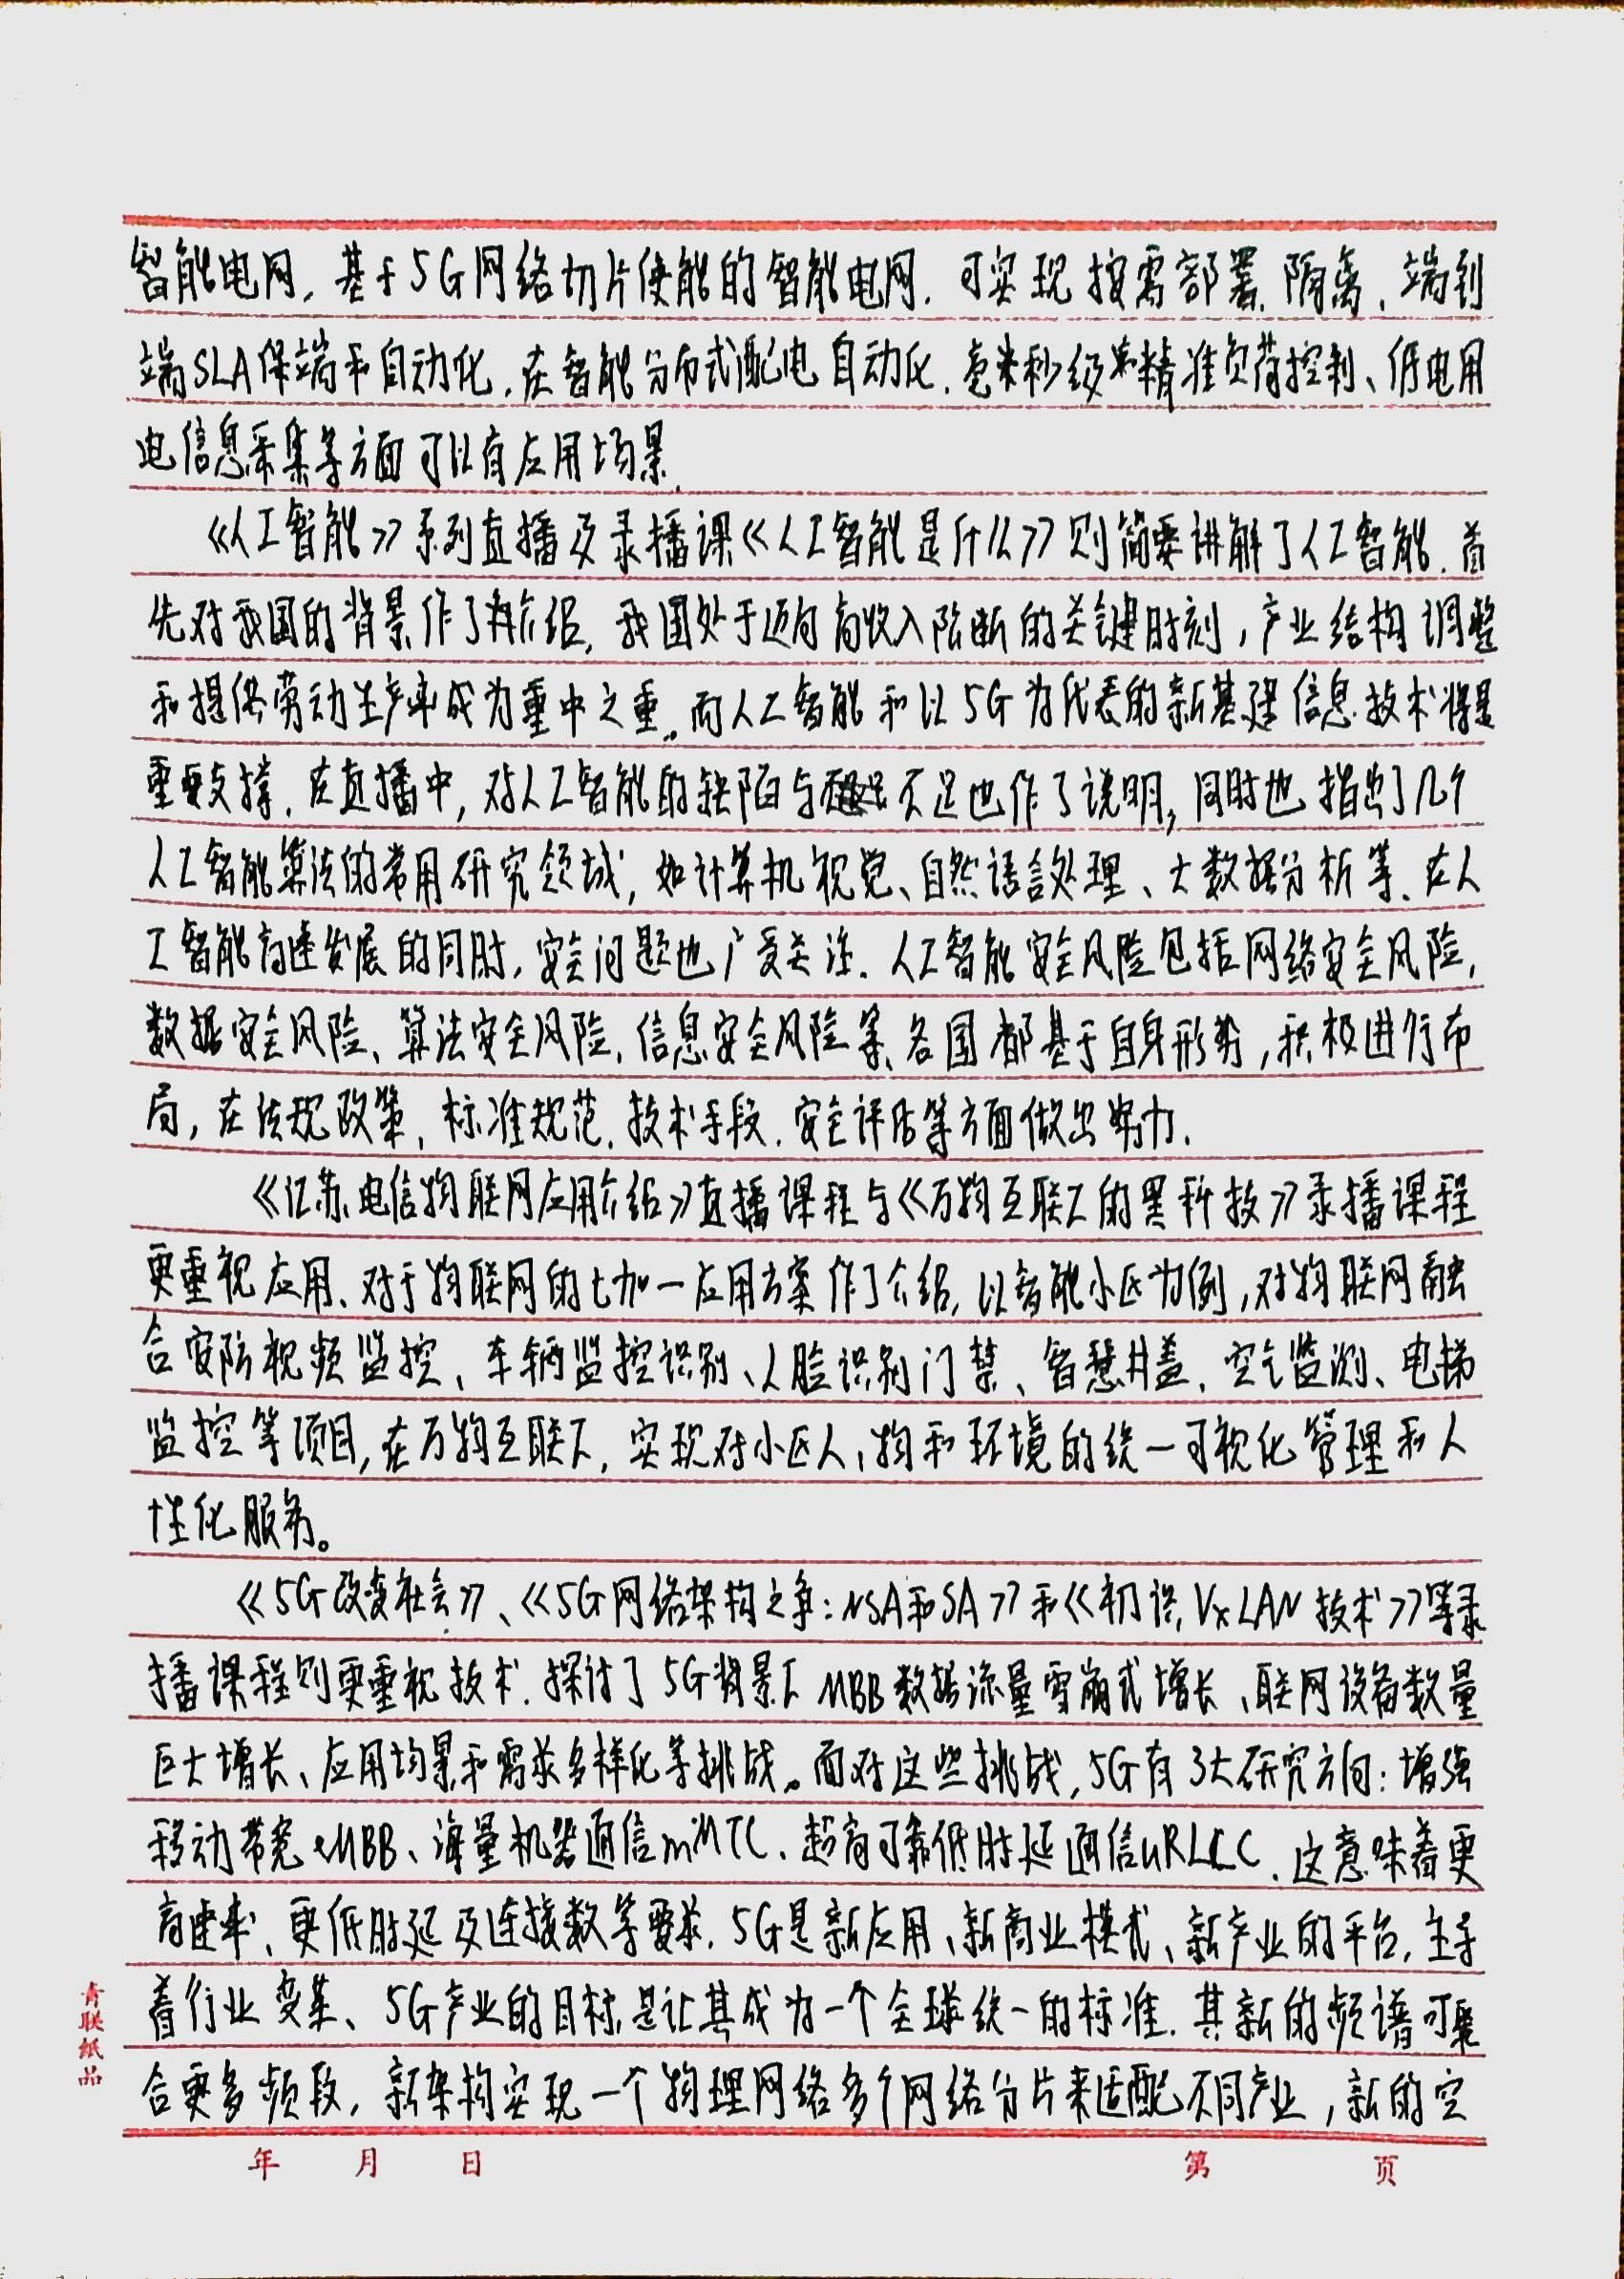 智能电网。基于5G网络切片使能的智能电网.可实现按需部署、隔离、端到
端SLA保端和自动化.在智能分布式配电自动化.毫米秒级和精准负荷控制、低电用
电信息采集等方面可以有应用场景.
《人工智能》系列直播及录播课《人工智能是什么》则简要讲解了人工智能.首
先对我国的背景作了介绍,我国处于迈向高收入阶断的关键时刻,产业结构调整
和提供劳动生产率成为重中之重。而人工智能和以5G为代表的新基建信息技术将是
重要支撑.在直播中,对人工智能的缺陷与不足也作了说明,同时也指出了几个
人工智能算法的常用研究领域,如计算机视觉、自然语言处理、大数据分析等.在人
工智能高速发展的同时,安全问题也广受关注.人工智能安全风险包括网络安全风险,
数据安全风险、算法安全风险、信息安全风险等、各国都基于自身形势,积极进行布
局,在法规政策、标准规范、技术手段、安全评估等方面做出努力.
《江苏电信物联网应用介绍》直播课程与《万物互联工的黑科技》录播课程
更重视应用、对于物联网的七加一应用方案作了介绍,以智能小区为例,对物联网融
合安防视频监控、车辆监控识别、人脸识别门禁、智慧井盖、空气监测、电梯
监控等项目,在万物互联下,实现对小区人,物和环境的统一可视化管理和人
性化服务。
《5G改变社会》、《5G网络架构之争:NSA和SA》和《初识VxLAN技术》等录
播课程则更重视技术.探讨了5G背景下MBB数据流量雪崩式增长、联网设备数量
巨大增长、应用场景和需求多样化等挑战。面对这些挑战,5G有3大研究方向:增强
移动带宽eMBB、海量机器通信mMTC、超高可靠低时延通信uRLLC.这意味着更
高速率、更低时延及连接数等要求.5G是新应用、新商业模式、新产业的平台,主导
着行业变革、5G产业的目标是让其成为一个全球统一的标准.其新的频谱可聚
合更多频段,新架构实现一个物理网络多个网络分片来适配不同产业,新的空
青联纸品
年 月 日 第 页